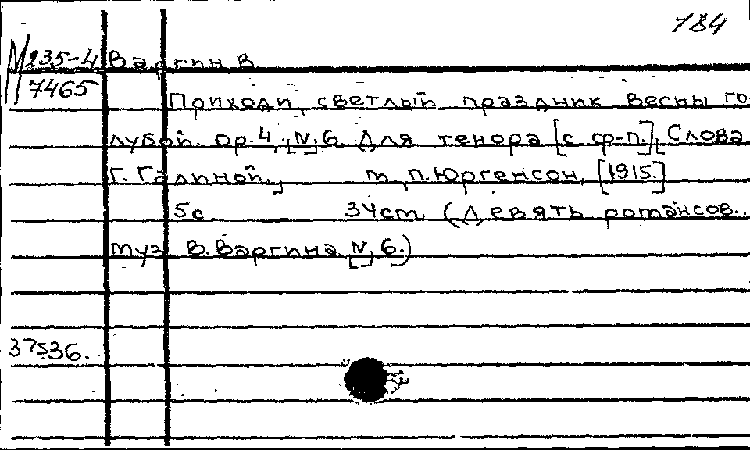 184
М 235-4 Варгин В.
7465
Приходи, светлый праздник весны го
лубой. ор.4, [№] 6. Для тенора [с ф-п.]. Слова
Г. Галиной.; м., П. Юргенсон, [1915.]
5с. 34см. (Девять романсов.
муз. В. Варгина [№] 6.)
37536.